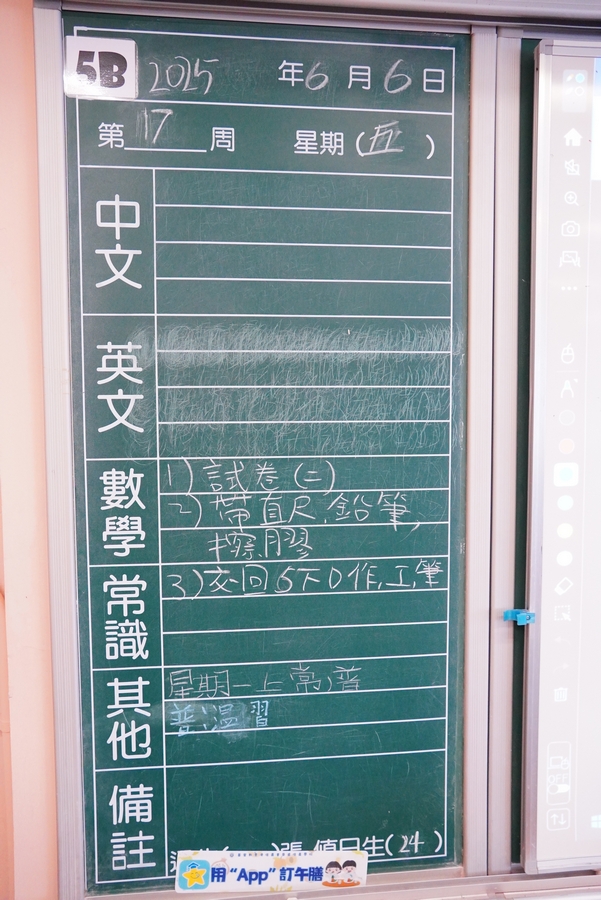 5B 2025 年 6 月 6 日
第 17 周 星期 (五)
中文
英文
數學
1) 試卷 (二)
2) 帶直尺, 鉛筆,
擦膠
常識
3) 交回 5下D 作, 工, 筆
其他
星期一上常, 普
普:溫習
備註
張 值日生 (24)
用 “App” 訂午膳
OFF